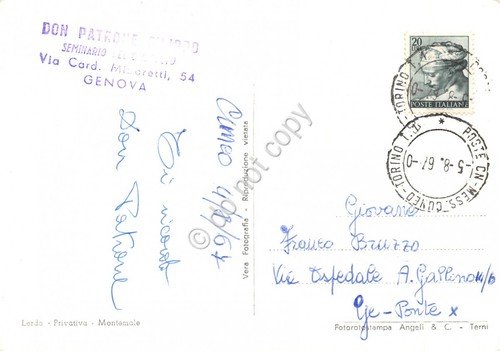 DON PATRONE
SEMINARIO
Via Card. Minoretti, 54
GENOVA
Cuneo 4/8/64
Ti ricordo
Don Patrone
Vera Fotografia Riproduzione vietata
do not copy
20
POSTE ITALIANE
POSTE CN-MESS. CUNEO-TORINO
-5-8.64-0
Giovano
Franco Bruzzo
Via Ospedale A. Gallino 14/6
Ge-Ponte X
Lerda - Privativa - Montemale
Fotorotostampa Angeli & C. - Terni